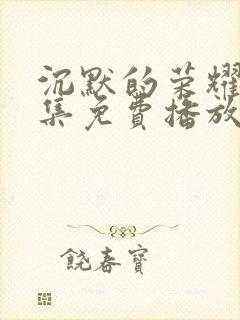 沉默的荣耀
集免费播放
饶春宝